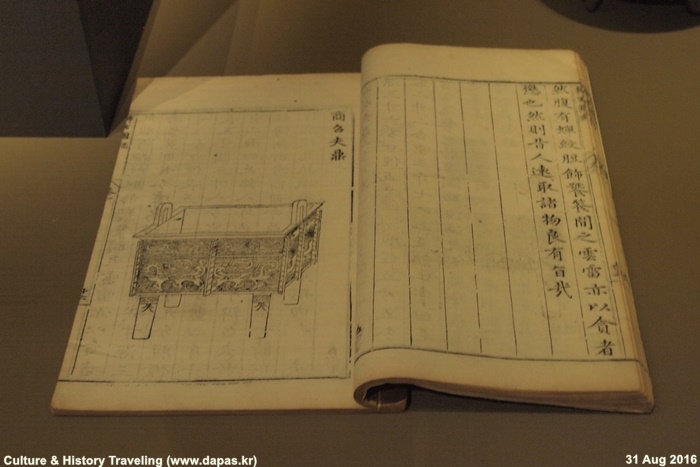 然腹有蟬紋脰飾饕餮間之雲雷亦以貪者
懲也然則昔人遠取諸物良有旨哉
商父夫鼎
Culture & History Traveling (www.dapas.kr)
31 Aug 2016